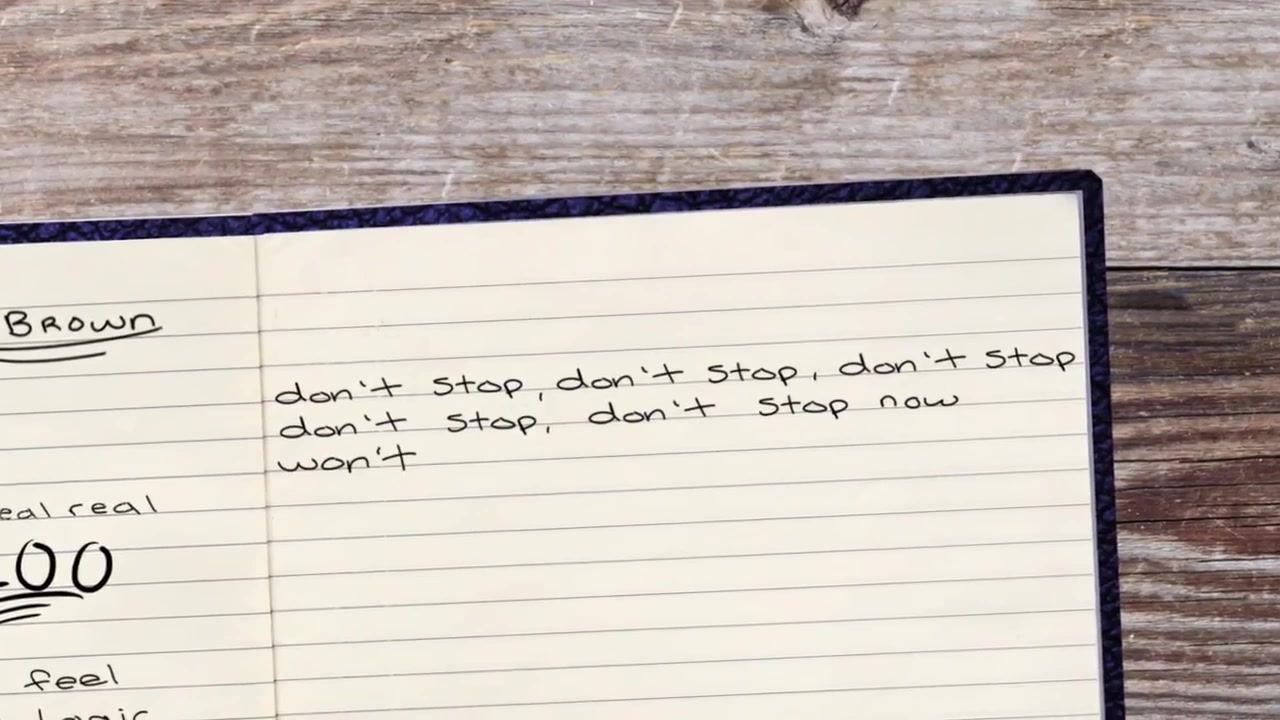 BROWN
real
00
feel
don't stop, don't stop, don't stop
don't stop, don't stop now
won't